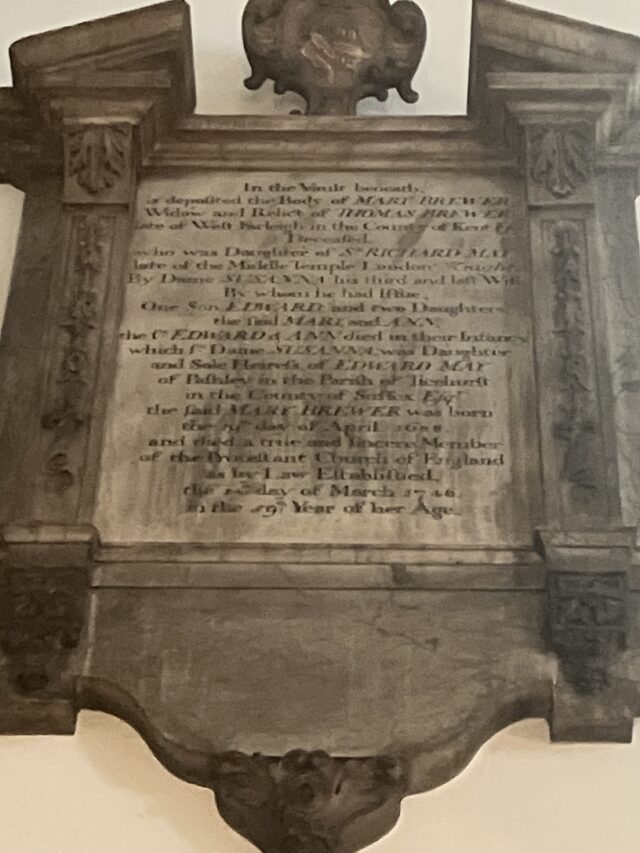 In the Vault beneath,
is deposited the Body of MARY BREWER
Widow and Relict of THOMAS BREWER
late of West Farleigh in the County of Kent
Deceased.
who was Daughter of Sr. RICHARD MAY
late of the Middle Temple London Knight
By Dame SUSANNA his third and last Wife
By whom he had Issue,
One Son EDWARD and two Daughters
the said MARY and ANN
the sd. EDWARD & ANN died in their Infancy
which sd. Dame SUSANNA was Daughter
and Sole Heiress of EDWARD MAY
of Pashley in the Parish of Ticehurst
in the County of Sussex Esqr.
the said MARY BREWER was born
the day of April 1688.
and died a true and sincere Member
of the Protestant Church of England
as by Law Established,
the day of March 1746.
in the 59th Year of her Age.